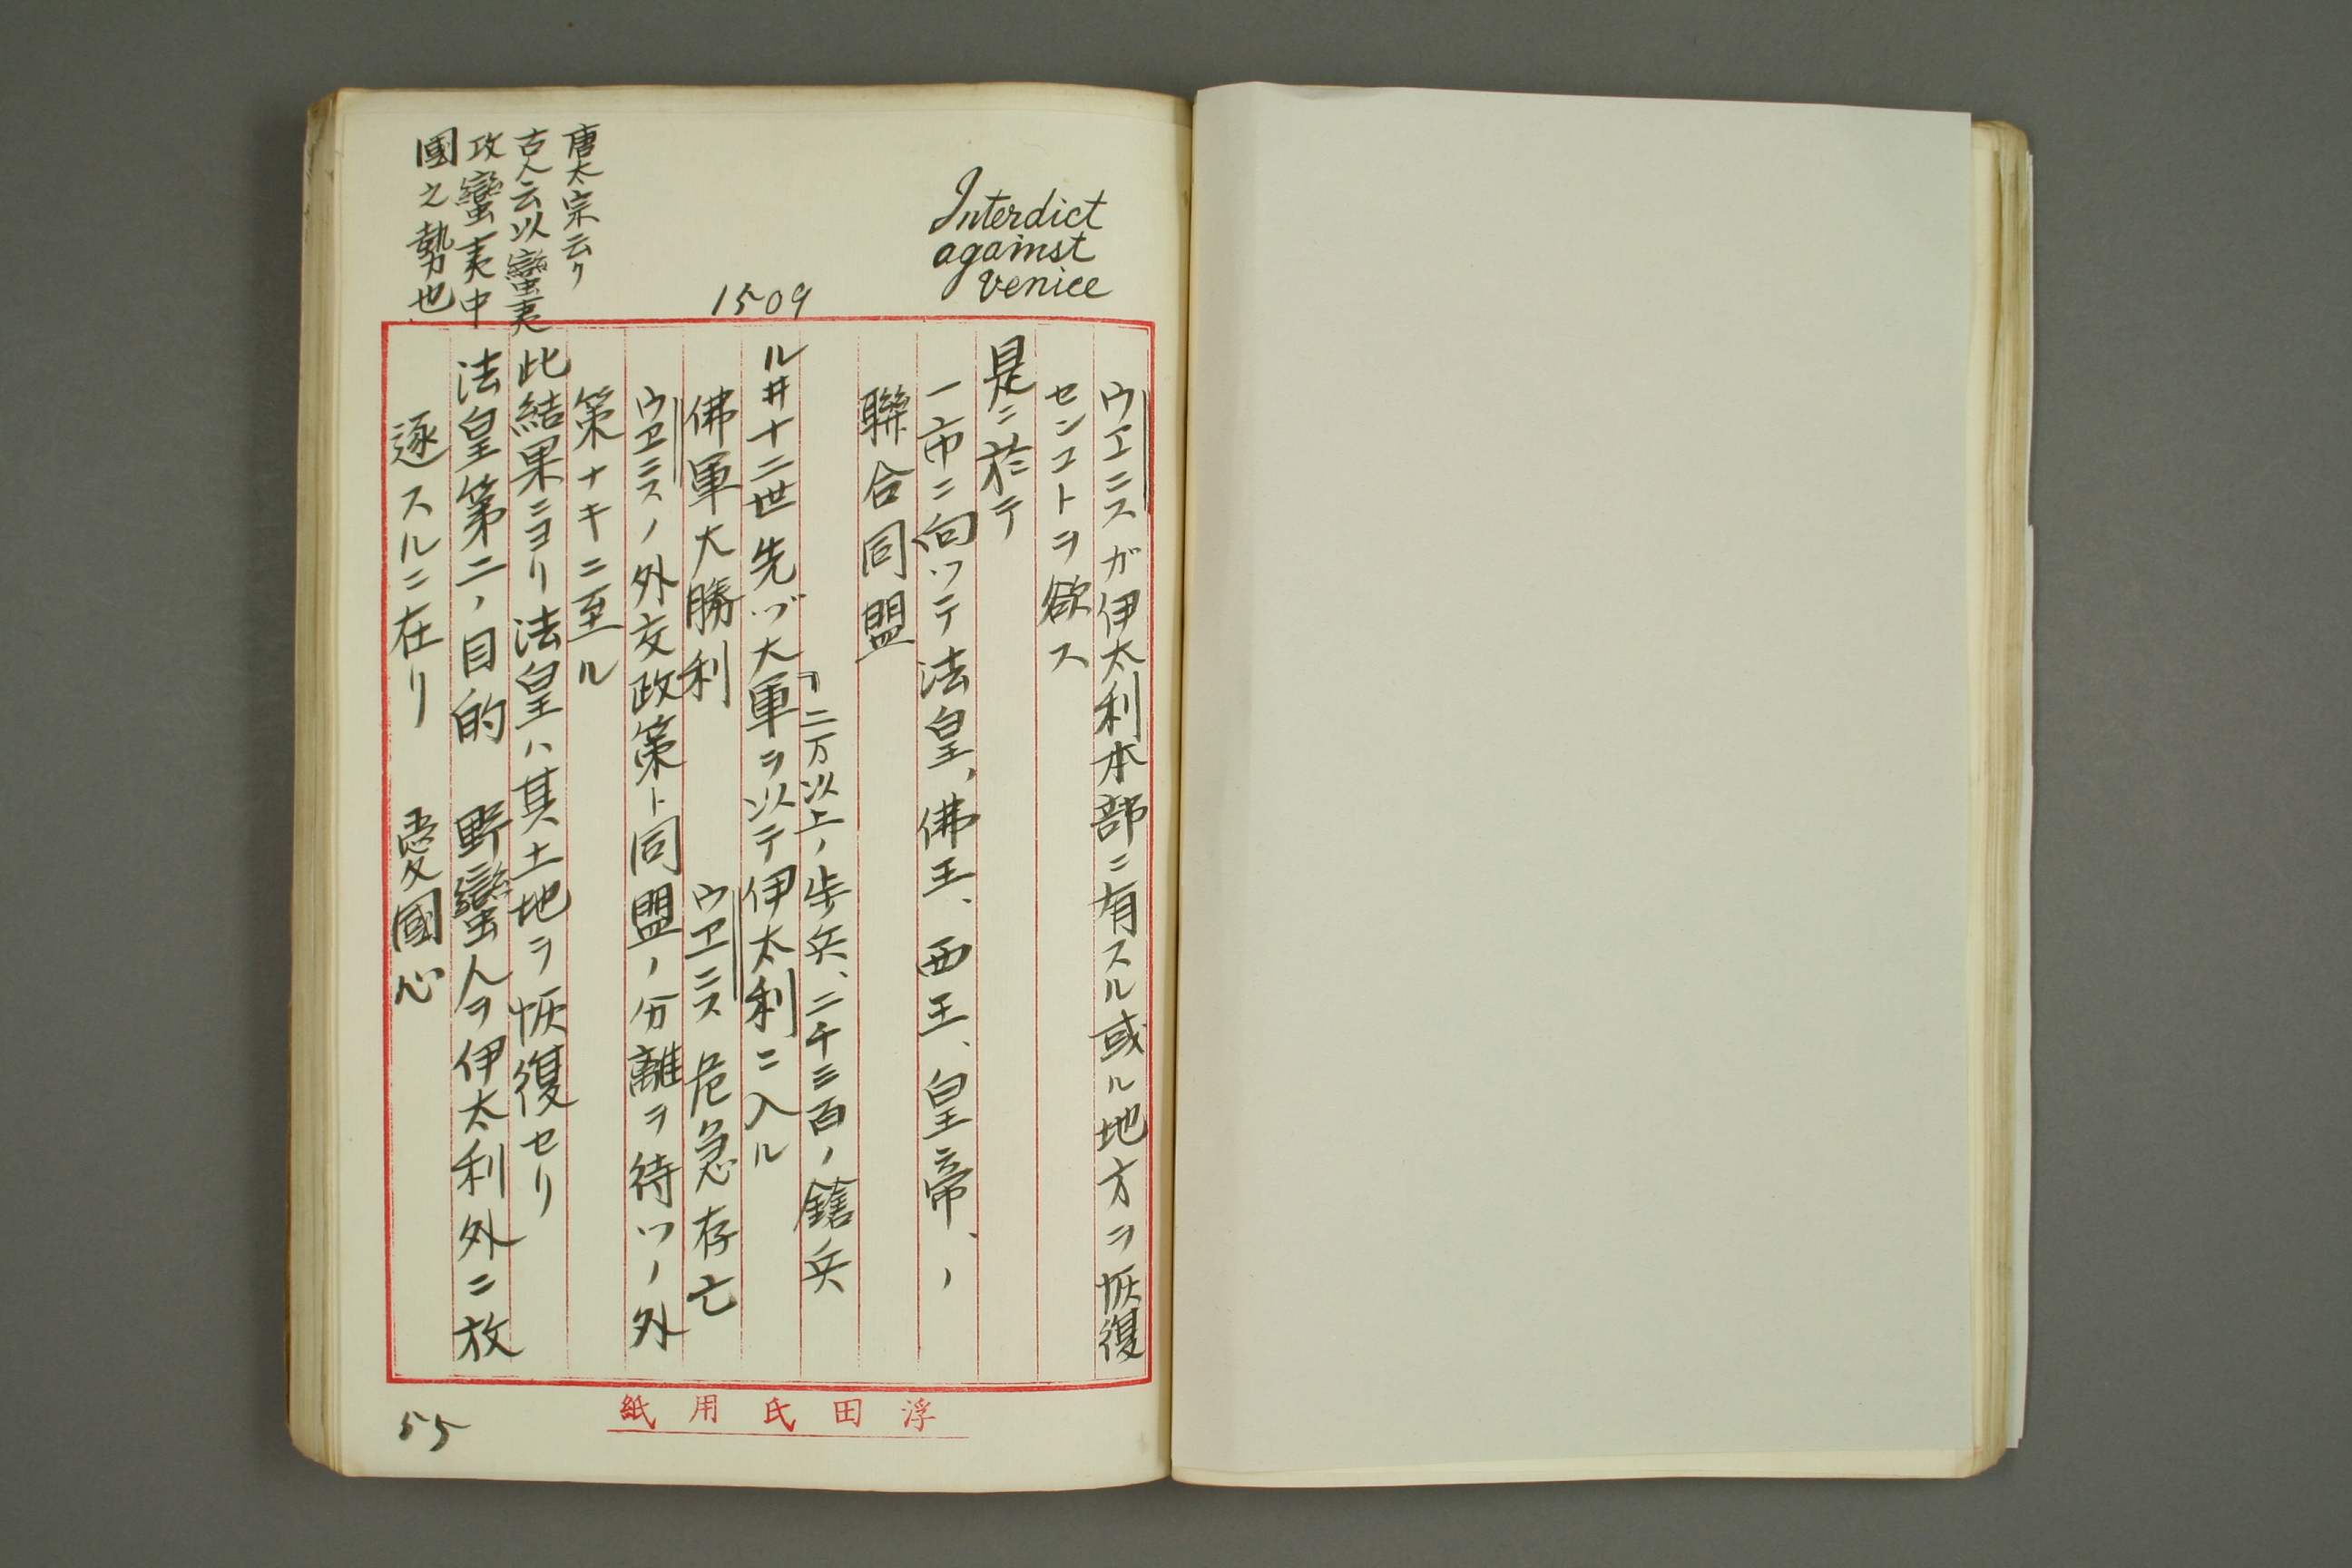 Interdict
against
Venice
ウエニスガ伊太利本部ニ有スル或ル地方ヲ恢復
センコトヲ欲ス
是ニ於テ
一市ニ向ツテ法皇、佛王、西王、皇帝、ノ
聯合同盟
1509
「二万以上ノ歩兵、二千三百ノ鎗兵
ル井十二世先ヅ大軍ヲ以テ伊太利ニ入ル
佛軍大勝利 ウエニス危急存亡
ウエニスノ外交政策ト同盟ノ分離ヲ待ツノ外
策ナキニ至ル
唐太宗云ク
古人云以蠻夷
攻蠻夷中
國之勢也
此結果ニヨリ法皇ハ其土地ヲ恢復セリ
法皇第二ノ目的 野蠻人ヲ伊太利外ニ放
逐スルニ在リ 愛國心
浮田氏用紙
55